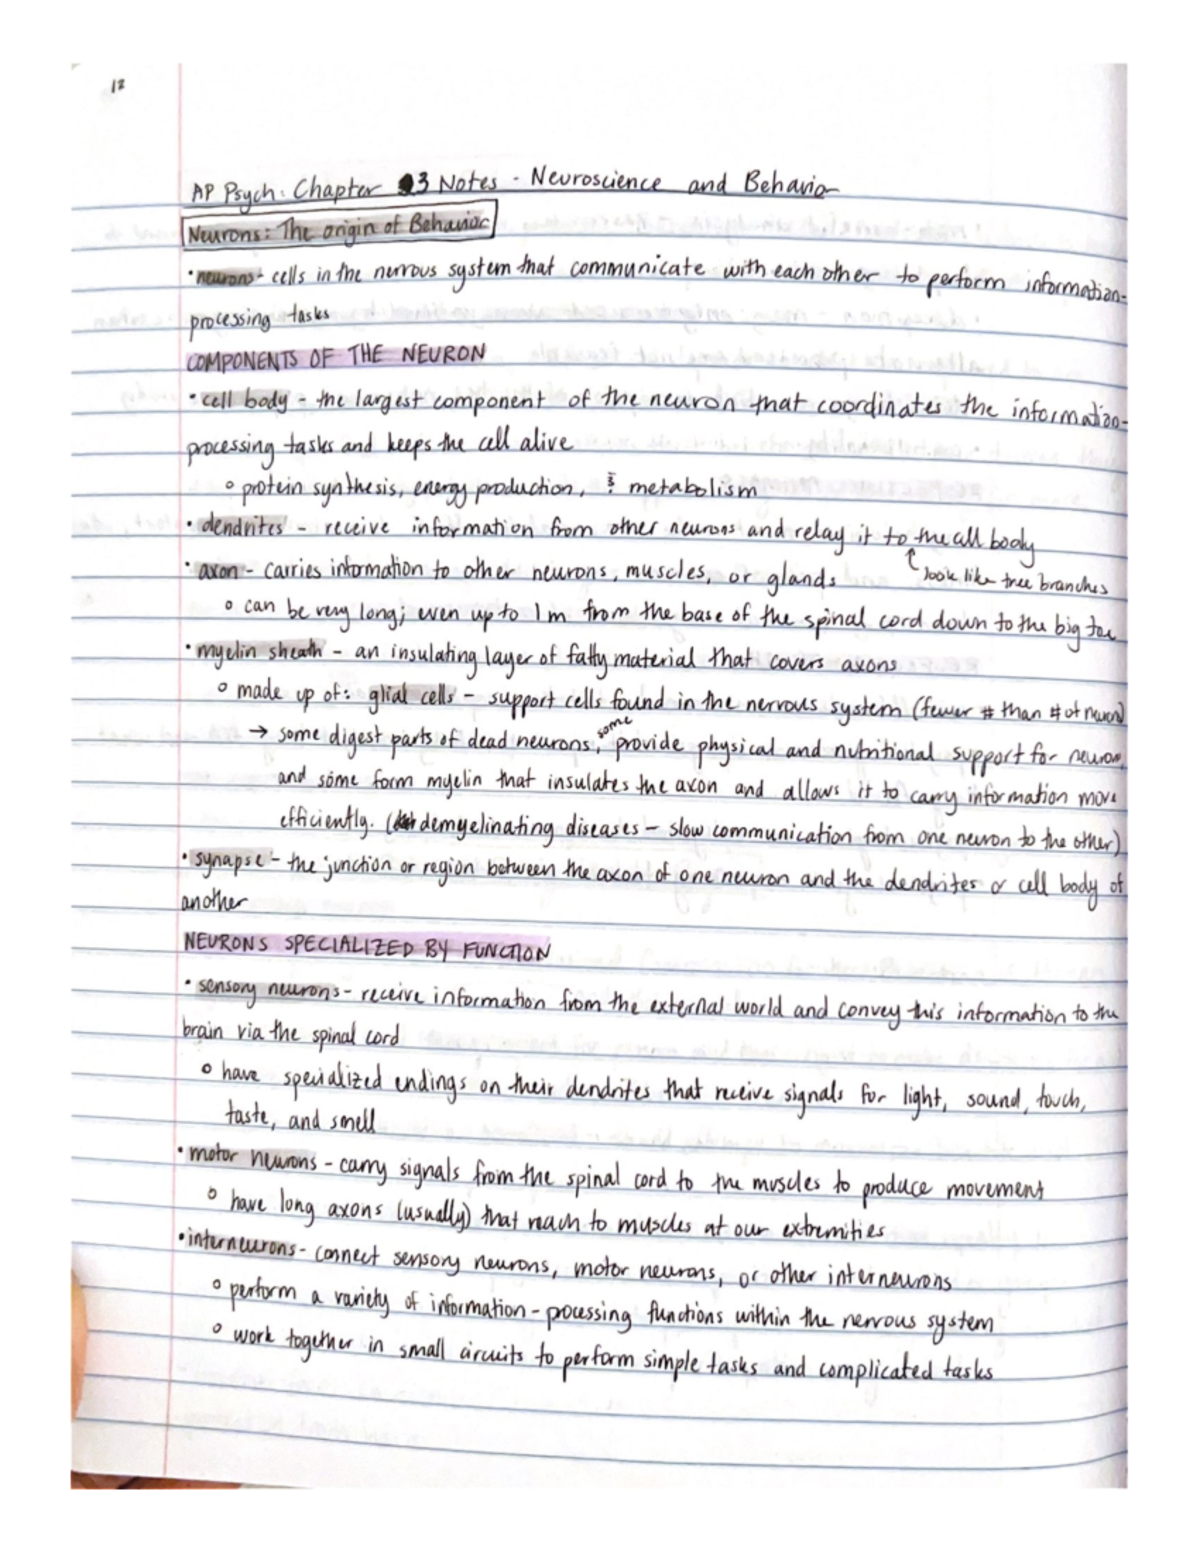 12
AP Psych: Chapter 3 Notes - Neuroscience and Behavior
Neurons: The origin of Behavior
• neurons - cells in the nervous system that communicate with each other to perform information-
processing tasks
COMPONENTS OF THE NEURON
• cell body - the largest component of the neuron that coordinates the information-
processing tasks and keeps the cell alive
∘ protein synthesis, energy production, & metabolism
• dendrites - receive information from other neurons and relay it to the cell body
↑ look like tree branches
• axon - carries information to other neurons, muscles, or glands
∘ can be very long; even up to 1 m from the base of the spinal cord down to the big toe
• myelin sheath - an insulating layer of fatty material that covers axons
∘ made up of: glial cells - support cells found in the nervous system (fewer # than # of neurons)
→ some digest parts of dead neurons, some provide physical and nutritional support for neurons,
and some form myelin that insulates the axon and allows it to carry information more
efficiently. (demyelinating diseases - slow communication from one neuron to the other)
• synapse - the junction or region between the axon of one neuron and the dendrites or cell body of
another
NEURONS SPECIALIZED BY FUNCTION
• sensory neurons - receive information from the external world and convey this information to the
brain via the spinal cord
∘ have specialized endings on their dendrites that receive signals for light, sound, touch,
taste, and smell
• motor neurons - carry signals from the spinal cord to the muscles to produce movement
∘ have long axons (usually) that reach to muscles at our extremities
• interneurons - connect sensory neurons, motor neurons, or other interneurons
∘ perform a variety of information-processing functions within the nervous system
∘ work together in small circuits to perform simple tasks and complicated tasks